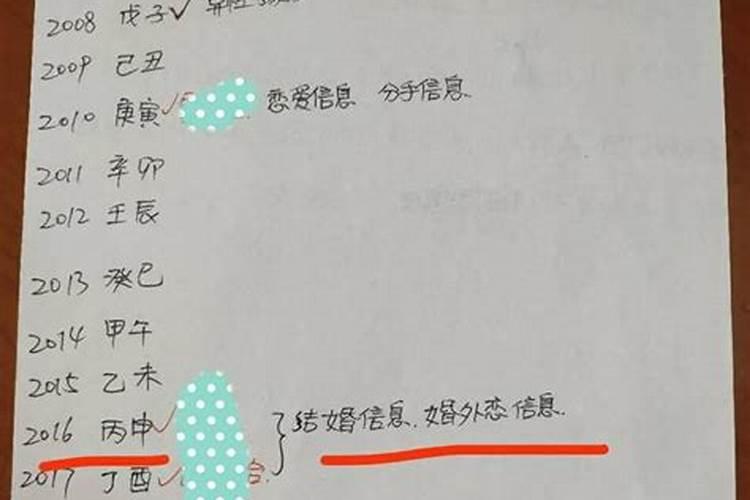 2008 戊子✓ 异性
2009 己丑
2010 庚寅✓ 恋爱信息 分手信息.
2011 辛卯
2012 壬辰
2013 癸巳
2014 甲午
2015 乙未
2016 丙申✓ 结婚信息.婚外恋信息.
2017 丁酉✓ 合.